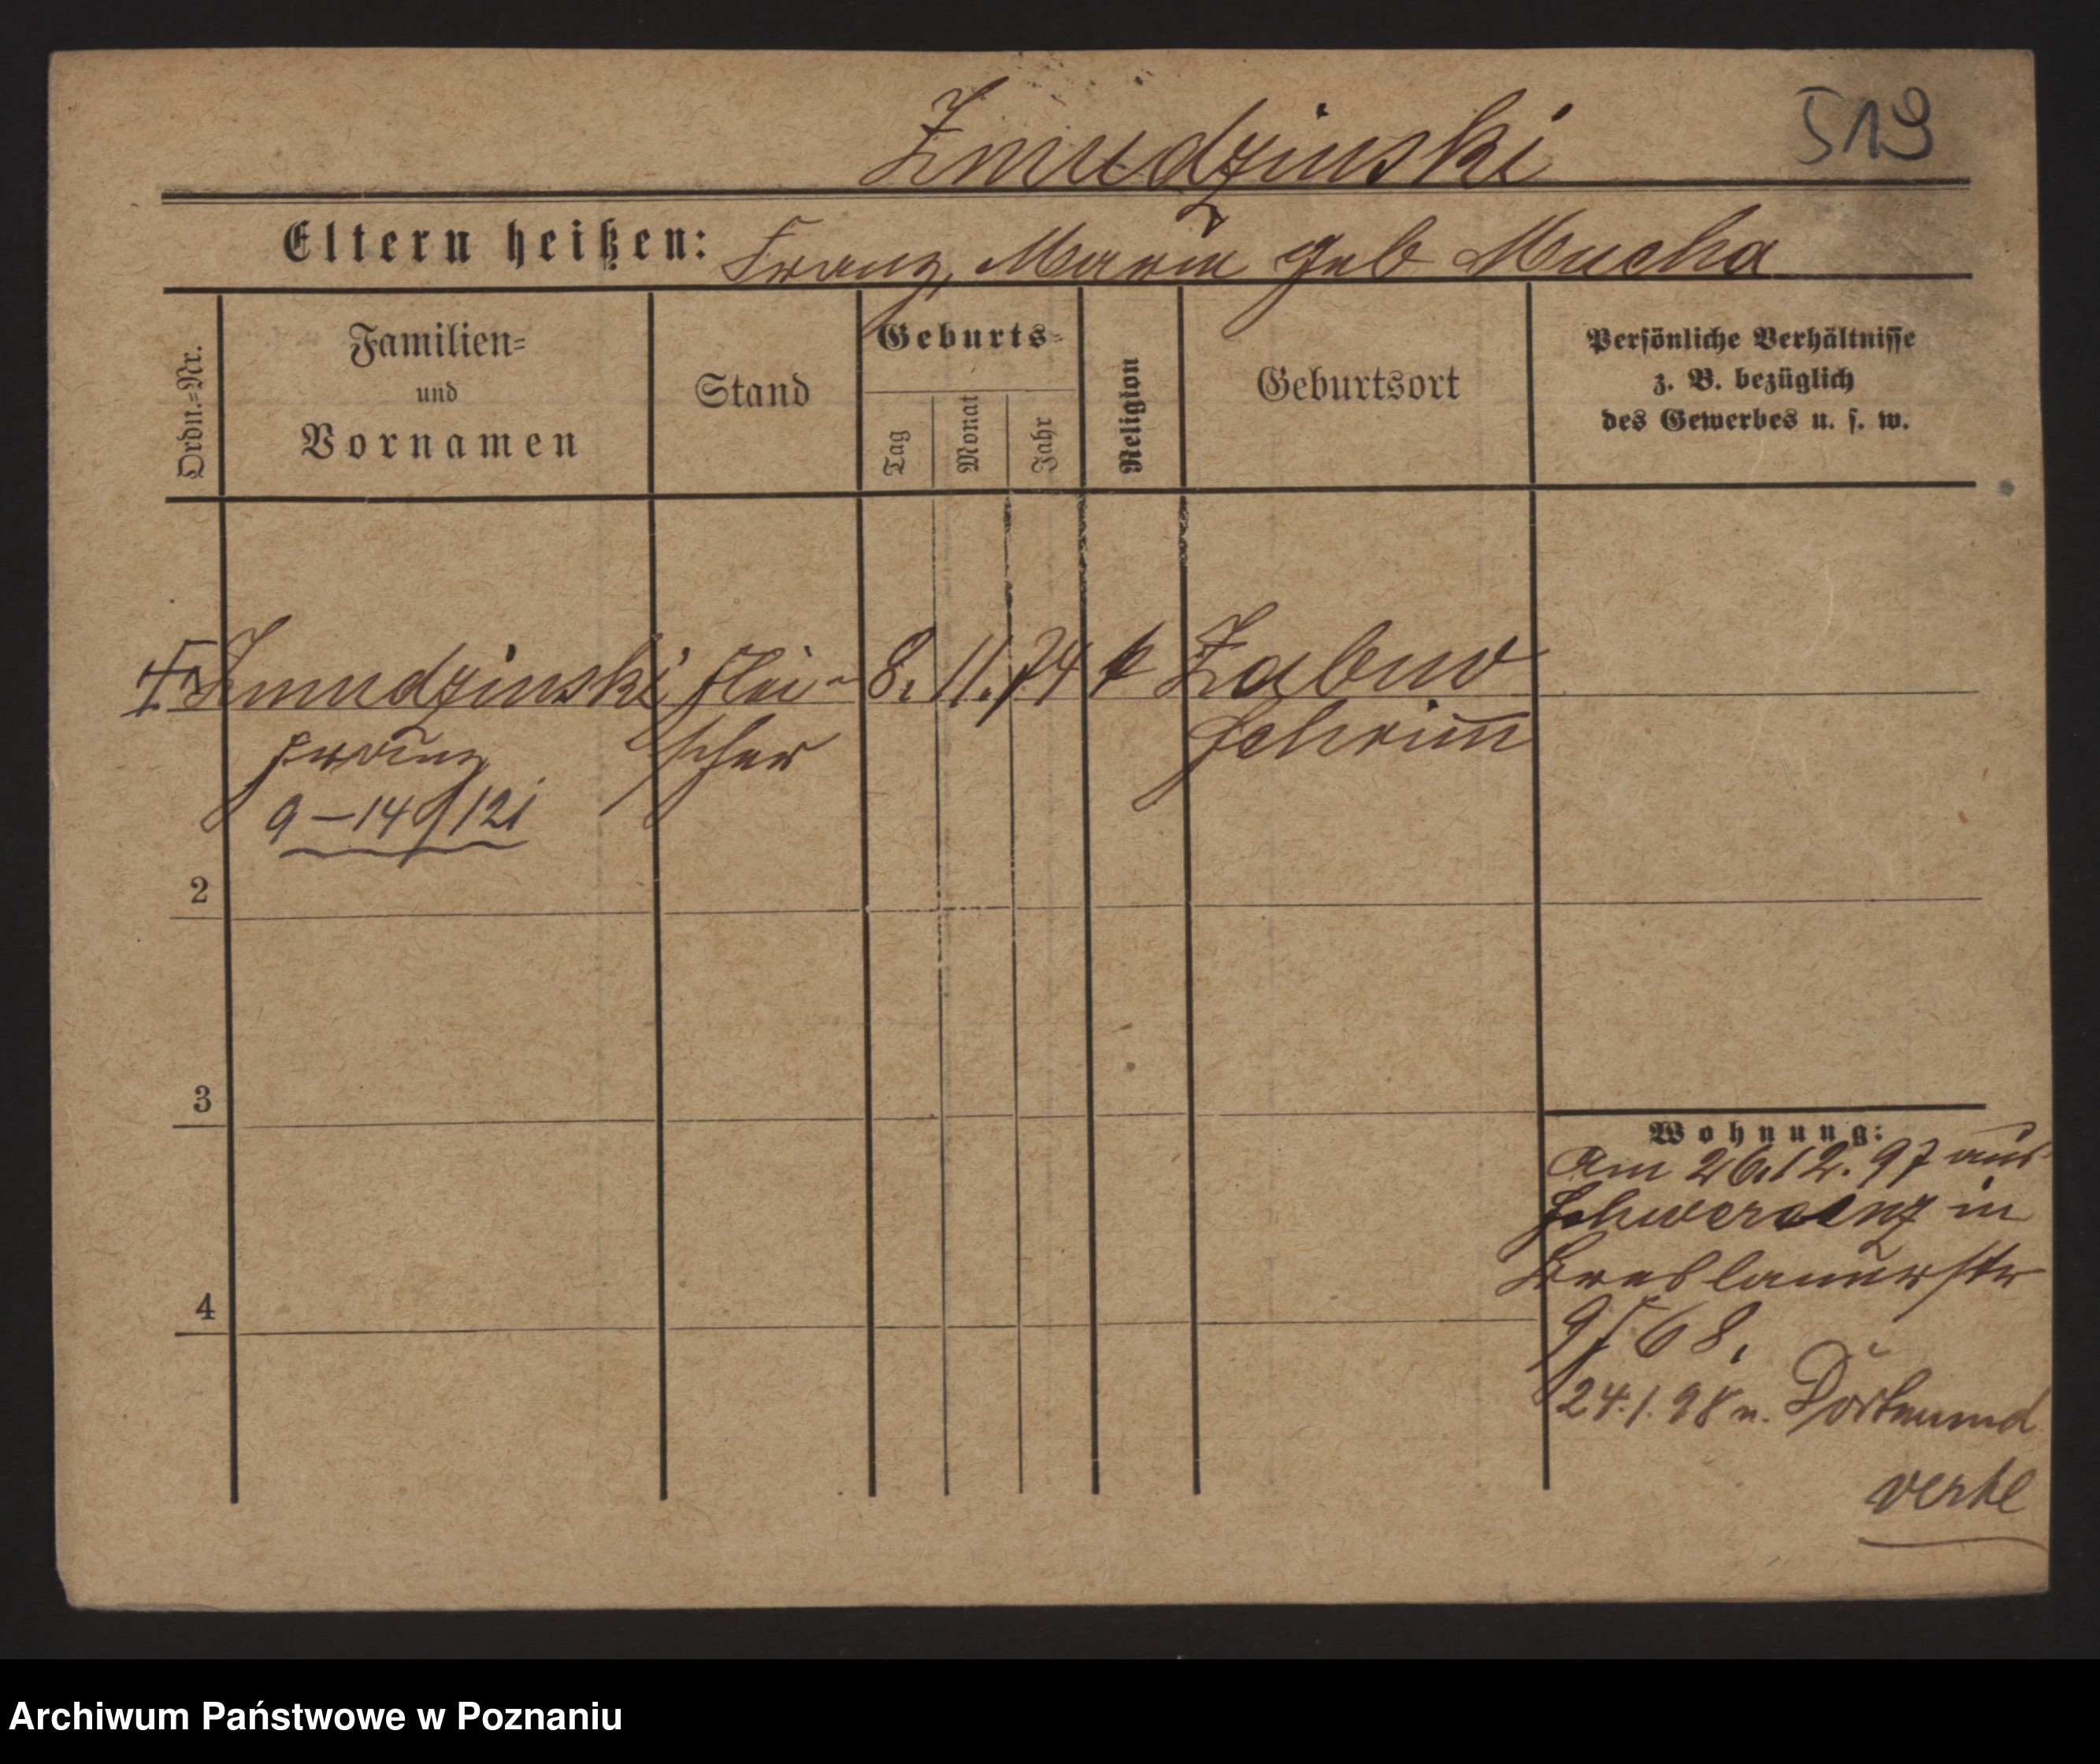 Zmudzinski
519
Eltern heißen: Franz, Maria geb Mucha
Ordn.=Nr.
Familien=
und
Vornamen
Stand
Geburts=
Tag
Monat
Jahr
Religion
Geburtsort
Persönliche Verhältnisse
z. B. bezüglich
des Gewerbes u. s. w.
Zmudzinski Flei- 8. 11. 74 k Zabno
Franz scher Schrimm
9-149/121
2
3
4
Wohnung:
Am 26.12.97 aus
Schwersenz in
Breslauerstr
9/ 68.
24.1.98 n. Dortmund
verte
Archiwum Państwowe w Poznaniu